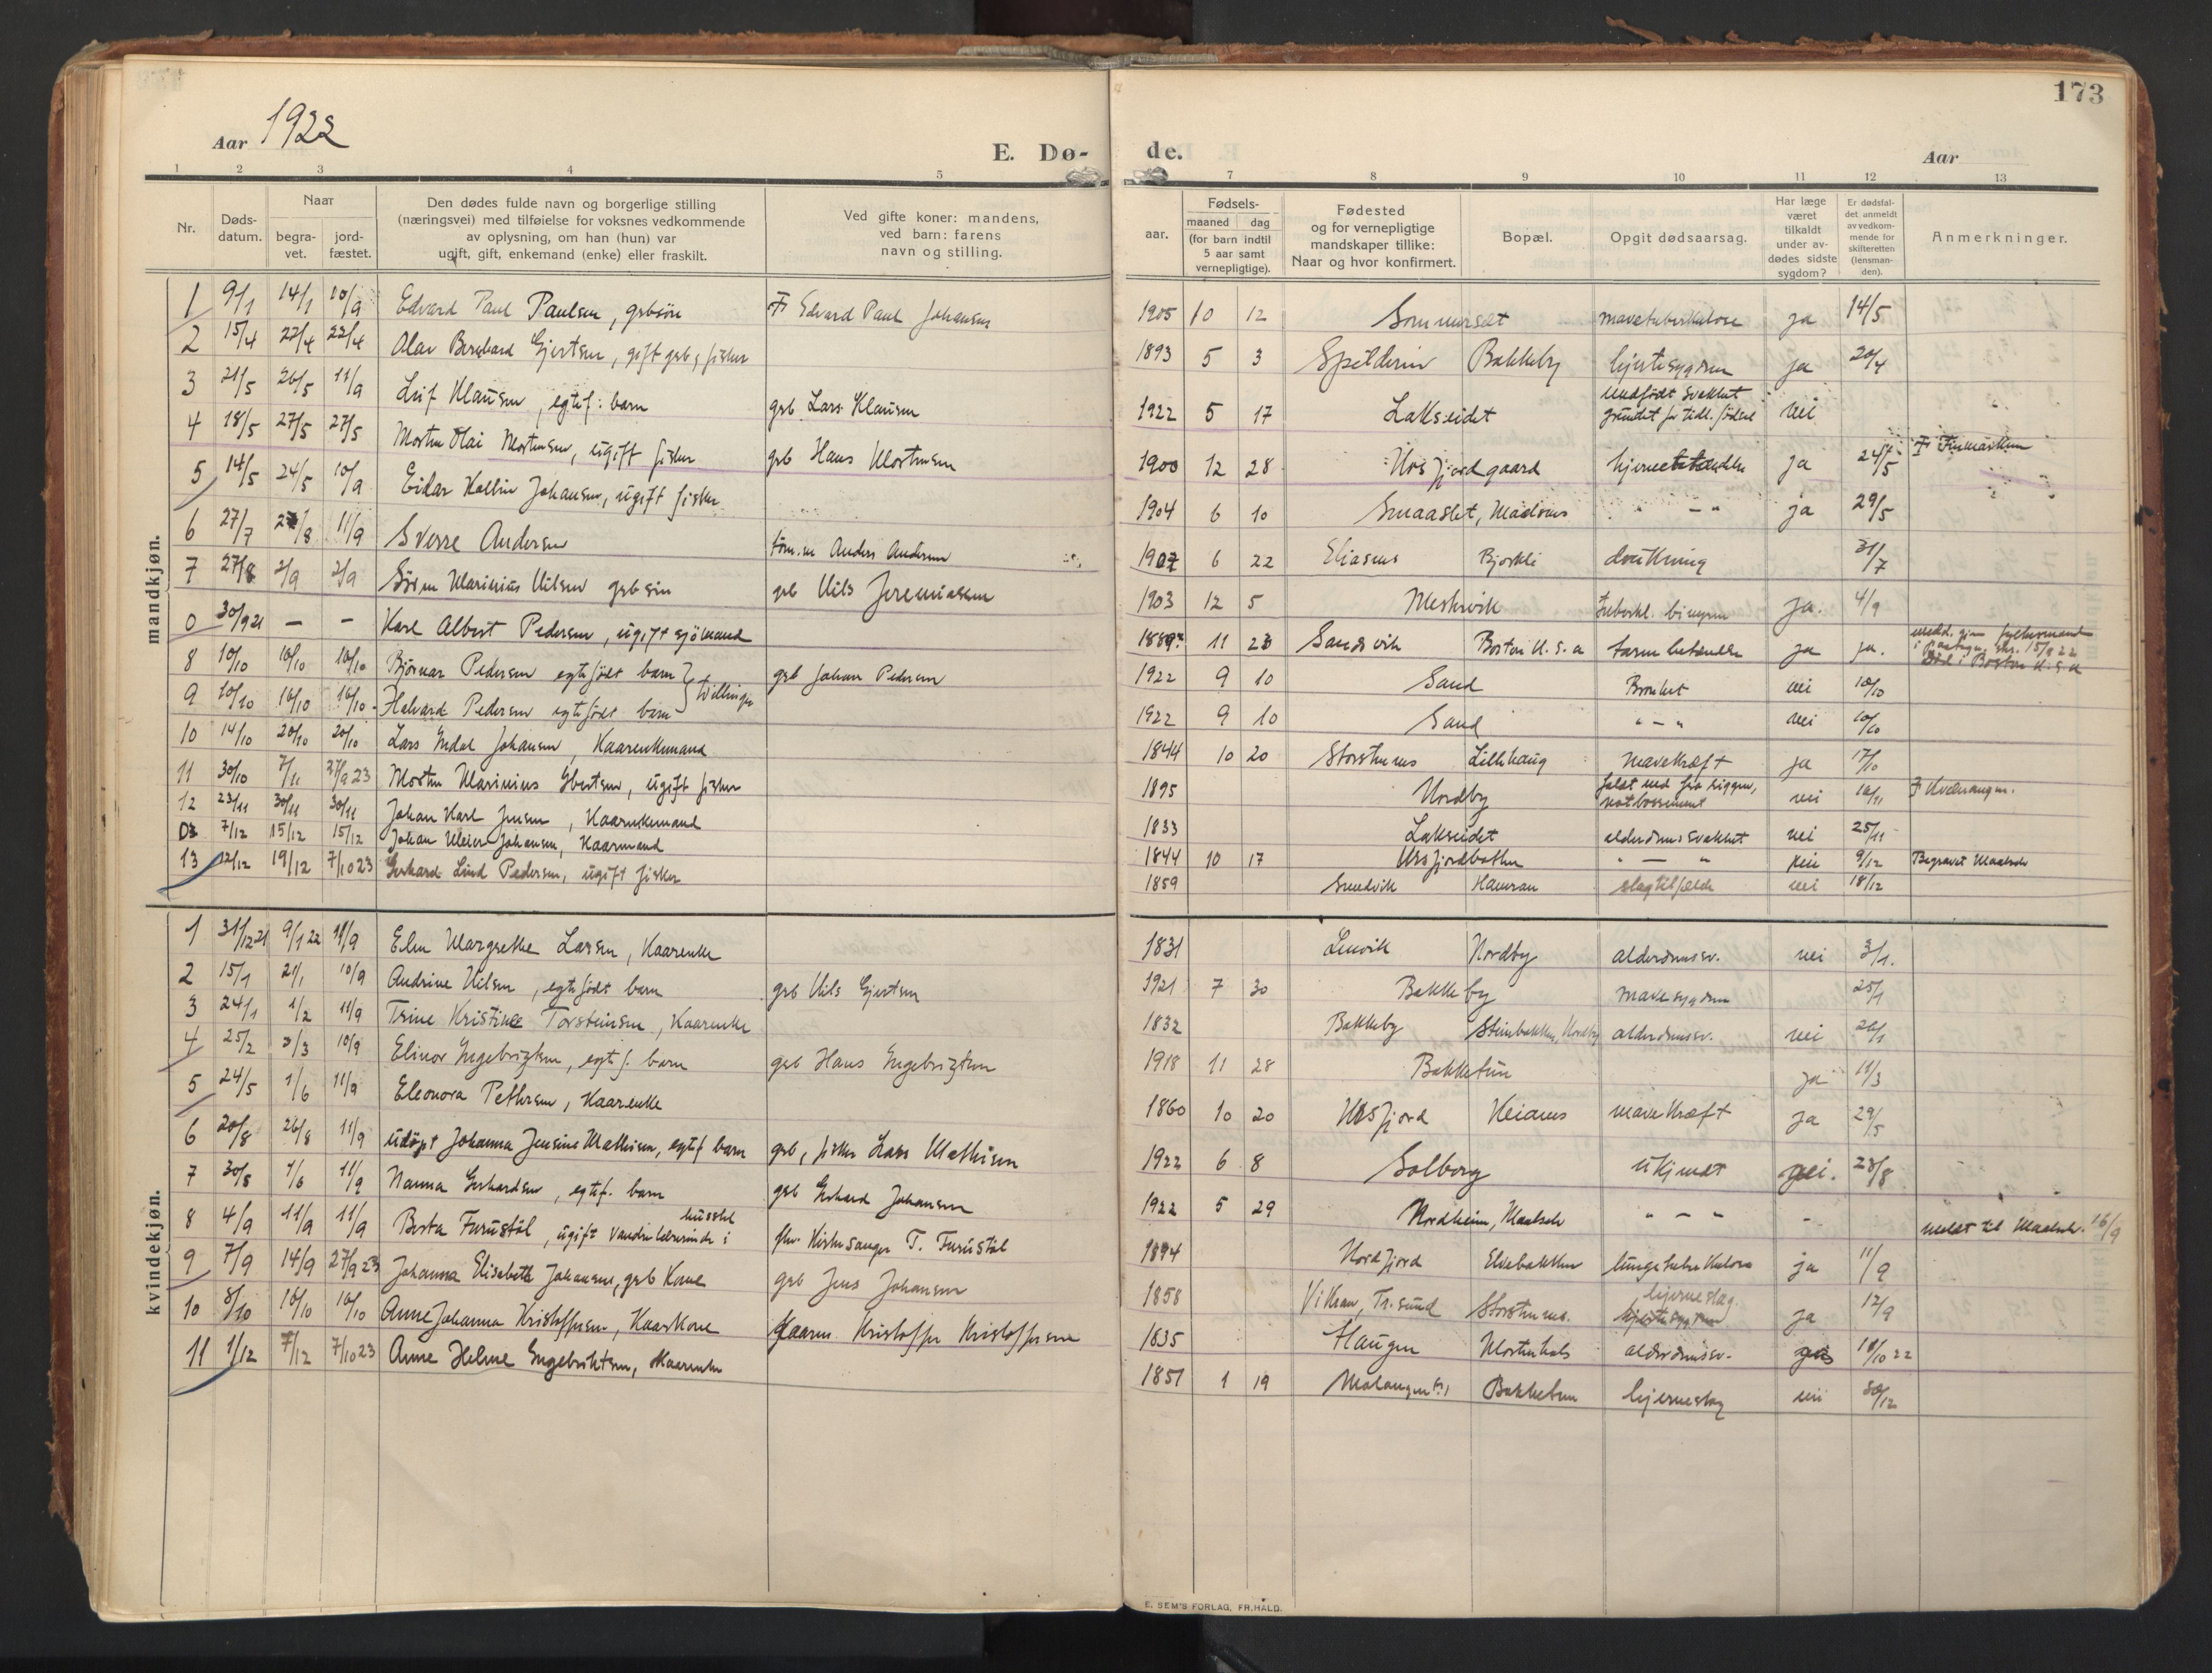 173
Aar 1922
E. Dø-
de.
Aar
1 2 3 4 5
7 8 9 10 11 12 13
Nr.
Døds-
datum.
Naar
begra-
vet.
jord-
fæstet.
Den dødes fulde navn og borgerlige stilling
(næringsvei) med tilføielse for voksnes vedkommende
av oplysning, om han (hun) var
ugift, gift, enkemand (enke) eller fraskilt.
Ved gifte koner: mandens,
ved barn: farens
navn og stilling.
Fødsels-
aar.
maaned dag
(for barn indtil
5 aar samt
vernepligtige).
Fødested
og for vernepligtige
mandskaper tillike:
Naar og hvor konfirmert.
Bopæl.
Opgit dødsaarsag.
Har læge
været
tilkaldt
under av-
dødes sidste
sygdom?
Er dødsfal-
det anmeldt
av vedkom-
mende for
skifteretten
(lensman-
den).
Anmerkninger.
mandkjøn.
1 9/1 14/1 10/9 Edvard Paul Paulsen, grbsøn Edvard Paul Johansen 1905 10 12 Sommerset mavetuberkulose ja 14/5
2 15/4 22/4 22/4 Olav Bernhard Gjertsen, gift grb, fisker 1893 5 3 Spilderen Bakkeby hjertesygdom ja 20/4
3 21/5 26/5 11/9 Leif Klausen, egtef: barn grb Lars Klausen 1922 5 17 Lakseidet medfødt svakhet grundet for tidl. fødsel nei
4 18/5 27/5 27/5 Morten Olai Mortensen, ugift fisker grb Hans Mortensen 1900 12 28 Rosfjordgaard ja Finmarken
5 14/5 24/5 10/9 Eidar Kolbin Johansen, ugift fisker 1904 6 10 Smaaslet, " - " ja 29/5
6 27/7 11/9 Sverre Andersen Anders Andersen 1907 6 22 Eliasnes Bjorkli drukning 31/7
7 27/8 2/9 2/9 Søren Marinius Nilsen grb søn grb Nils Jeremiassen 1903 12 5 Mestervik tuberkl. ja. 4/9
0 30/9 21 - - Karl Albert Pedersen, ugift sjømand 11 23 Sandsvik Boston U.S.a tarmbetændelse ja ja. i Boston U.S.a
8 10/10 16/10 16/10 Bjørnar Pedersen egtefødt barn } tvillinger grb Johan Pedersen 1922 9 10 Sand Bronkit nei 10/10
9 10/10 16/10 16/10 Halvard Pedersen egtefødt barn 1922 9 10 Sand " - " nei 10/10
10 14/10 20/10 20/10 Lars Johansen, Kaarenkemand 1844 10 20 Storsteinnes Lillehaug Mavekræft ja 17/10
11 30/10 7/11 27/9 23 Morten Marinius Ebertsen, ugift fisker 1895 Nordby faldt ned fra riggen, nei 10/11 Kvænangen.
12 23/11 30/11 30/11 Johan Karl Jensen, Kaarenkemand 1833 Lakseidet alderdomssvakhet nei 25/11
7/12 15/12 15/12 Johan Meier Johansen, Kaarmand 1844 10 17 Rosfjordbotten " - " nei 9/12 Begravet Maalselv
13 12/12 19/12 7/10 23 Gerhard Lind Pedersen, ugift fisker 1859 Hamran slagtilfælde nei 18/12
kvindekjøn.
1 31/12 21 9/1 22 11/9 Elen Margrethe Larsen, Kaarenke 1831 Lenvik Nordby alderdomssv. nei 3/1.
2 15/1 21/1 10/9 Andrine Nilsen, egtefødt barn grb Nils Gjertsen 1921 7 30 Bakkeby mavesygdom 25/1
3 24/1 1/2 11/9 Trine Kristine Torsteinsen, Kaarenke 1832 Bakkeby Steinbakken, Nordby alderdomssv. nei 26/1
4 25/2 3/3 10/9 Elinor Engebrigtsen, egtef. barn grb Hans Engebrigtsen 1918 11 28 Bakketun ja 11/3
5 24/5 1/6 11/9 Eleonora Pethersen, Kaarenke 1860 10 20 Rosfjord Heianes mavekræft ja 29/5
6 20/8 26/8 11/9 udøpt Johanna Jensine Mathisen, egtef barn grb, fisker Lars Mathisen 1922 6 8 Solborg ukjendt nei. 23/8
7 30/5 1/6 11/9 Nanna Gerhardsen, egtef. barn grb Gerhard Johansen 1922 5 29 Nordheim, Maalselv " - " -
8 4/9 11/9 11/9 Berta Furustøl, ugift vandrelærerinde i husstel fhv. Kirkesanger T. Furustøl meldt til Maalselv. 16/9
9 7/9 14/9 27/9 23 Johanna Elisabeth Johansen, grb Kone grb Jens Johansen 1894 Nordfjord Elvebakken lungetuberkulose ja 11/9
10 8/10 16/10 16/10 Anne Johanna Kristoffersen, Kaarkone Kaarm Kristoffer Kristoffersen 1858 Vikran, Tr.sund Storsteinnes. hjerneslag. hjertesygdom ja 12/9
1835 Haugen Mortenhals alderdomssv. 18/10 22
11 1/12 7/12 7/10 23 Anne Helene Engebriktsen, Kaarenke 1851 1 19 Malangen Bakketun hjerneslag nei 30/12
E. SEM'S FORLAG, FR.HALD.